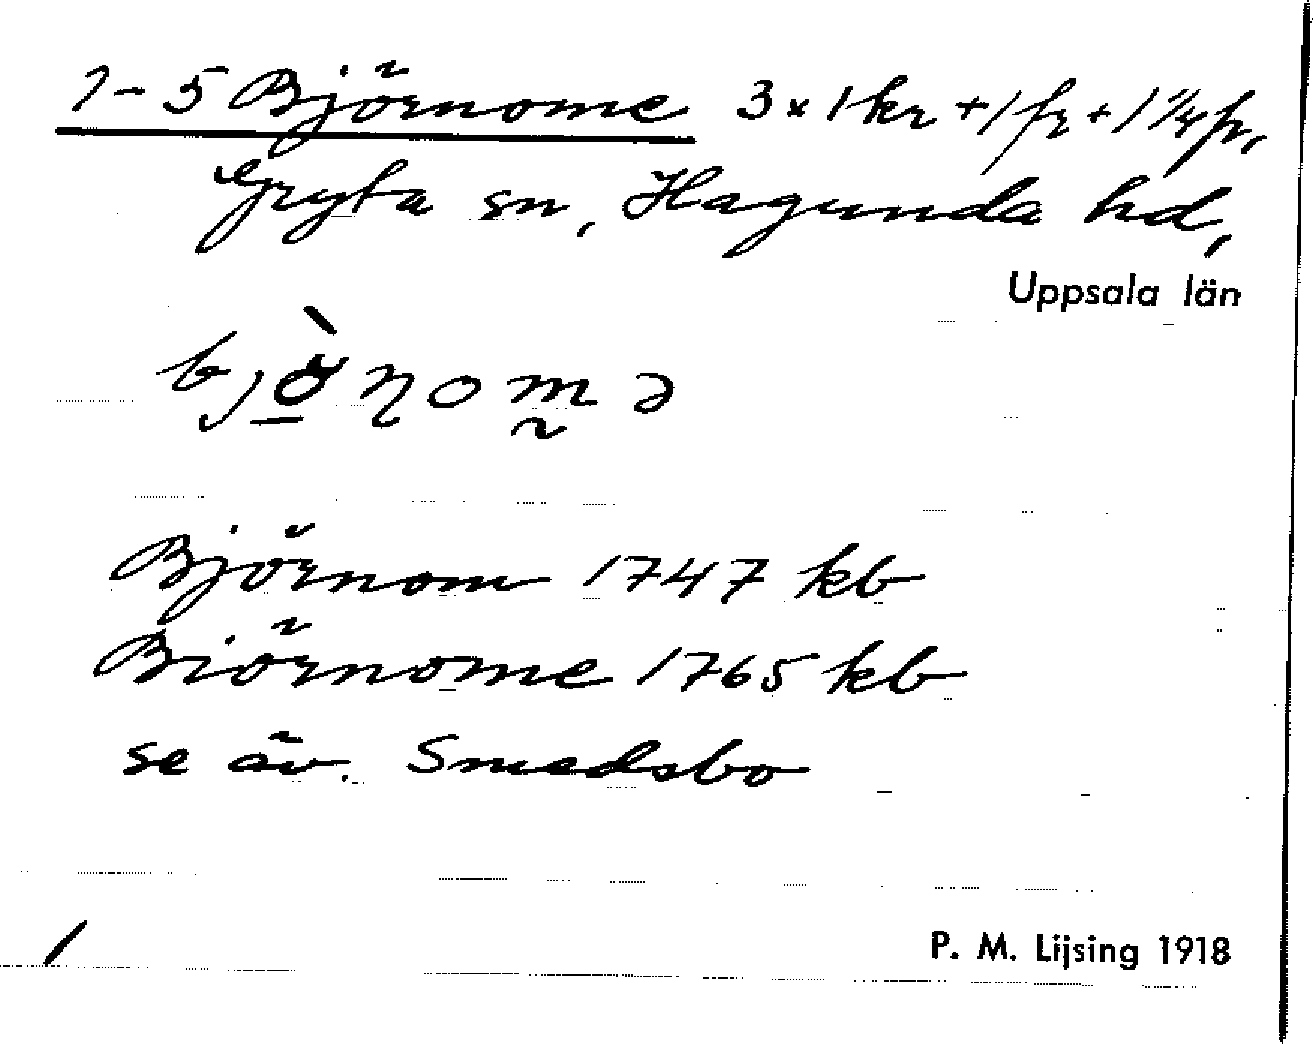 1-5 Björnome 3 x 1 kr + 1 fr + 1 1/4 fr,
Gryta sn, Hagunda hd,
Uppsala län
Björnom 1747 kb
Biörnome 1765 kb
se äv. Smedsbo
P. M. Lijsing 1918